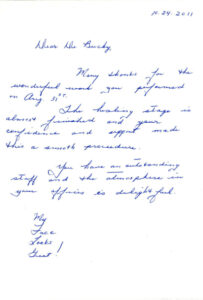 Many thanks for the
wonderful work you performed
on Aug 31st.
The healing stage is
almost finished and your
confidence and support made
this a smooth procedure.
You have an outstanding
staff and the atmosphere in
your offices is delightful.
My
Face
Looks
Great!